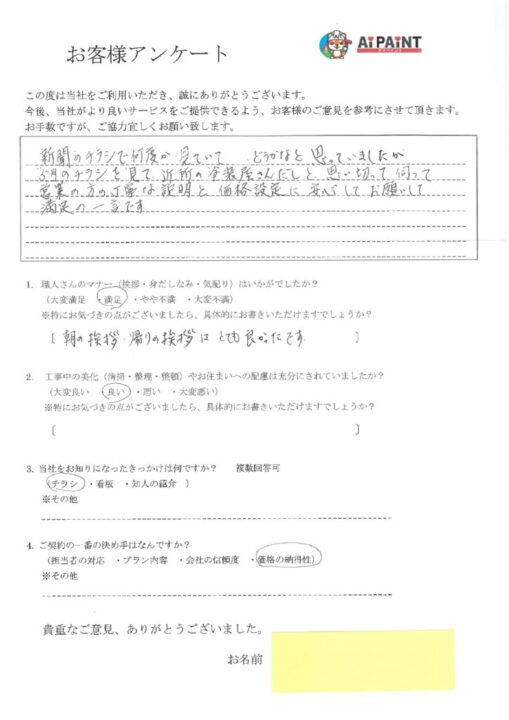 お客様アンケート
AiPAiNT
この度は当社をご利用いただき、誠にありがとうございます。
今後、当社がより良いサービスをご提供できるよう、お客様のご意見を参考にさせて頂きます。
お手数ですが、ご協力宜しくお願い致します。
新聞のチラシで何度か見ていて どうかなと思っていましたが
5月のチラシを見て、近所の塗装屋さんだしと、思い切って伺って
営業の方の丁寧な説明と価格設定に安心してお願いして
満足の一言です
1. 職人さんのマナー（挨拶・身だしなみ・気配り）はいかがでしたか？
（大変満足 ・満足 ・やや不満 ・大変不満）
※特にお気づきの点がございましたら、具体的にお書きいただけますでしょうか？
〔 朝の挨拶・帰りの挨拶はとても良かったです。 〕
2. 工事中の美化（清掃・整理・整頓）やお住まいへの配慮は充分にされていましたか？
（大変良い ・良い ・悪い ・大変悪い）
※特にお気づきの点がございましたら、具体的にお書きいただけますでしょうか？
〔 〕
3. 当社をお知りになったきっかけは何ですか？ 複数回答可
（チラシ ・看板 ・知人の紹介 ）
※その他
4. ご契約の一番の決め手はなんですか？
（担当者の対応 ・プラン内容 ・会社の信頼度 ・価格の納得性）
※その他
貴重なご意見、ありがとうございました。
お名前